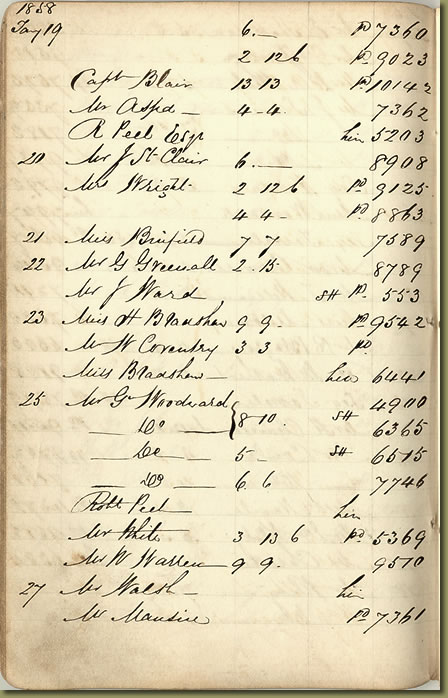 1858
Jany 19 6. — Pd 7360
2 12 6 Pd 9023
Capt Blair 13 13 Pd 10142
Mr Aspd — 4 - 4. 7362
R Peel Esqr hire 5203
20 Mr J St Clair 6. — 8908
Mrs Wright 2 12 6 Pd 9125
4 4 - Pd 8863
21 Miss Binfield 7 7 7589
22 Mr G Greenall 2. 15 8789
Mr J Ward SH Pd 553
23 Miss H Bradshaw 9 9. Pd 9542
Mr W Coventry 3 3 Pd
Miss Bradshaw — hire 6441
25 Mr G Woodward 4900
— Do — 8 10. SH 6365
— Do — 5 - SH 6515
— Do — 6. 6 7746
Robt Peel hire
Mr White 3 13 6 Pd 5369
Mr W Warren — 9 9. 9510
27 Mr Walsh — hire
Mr Pd 7361